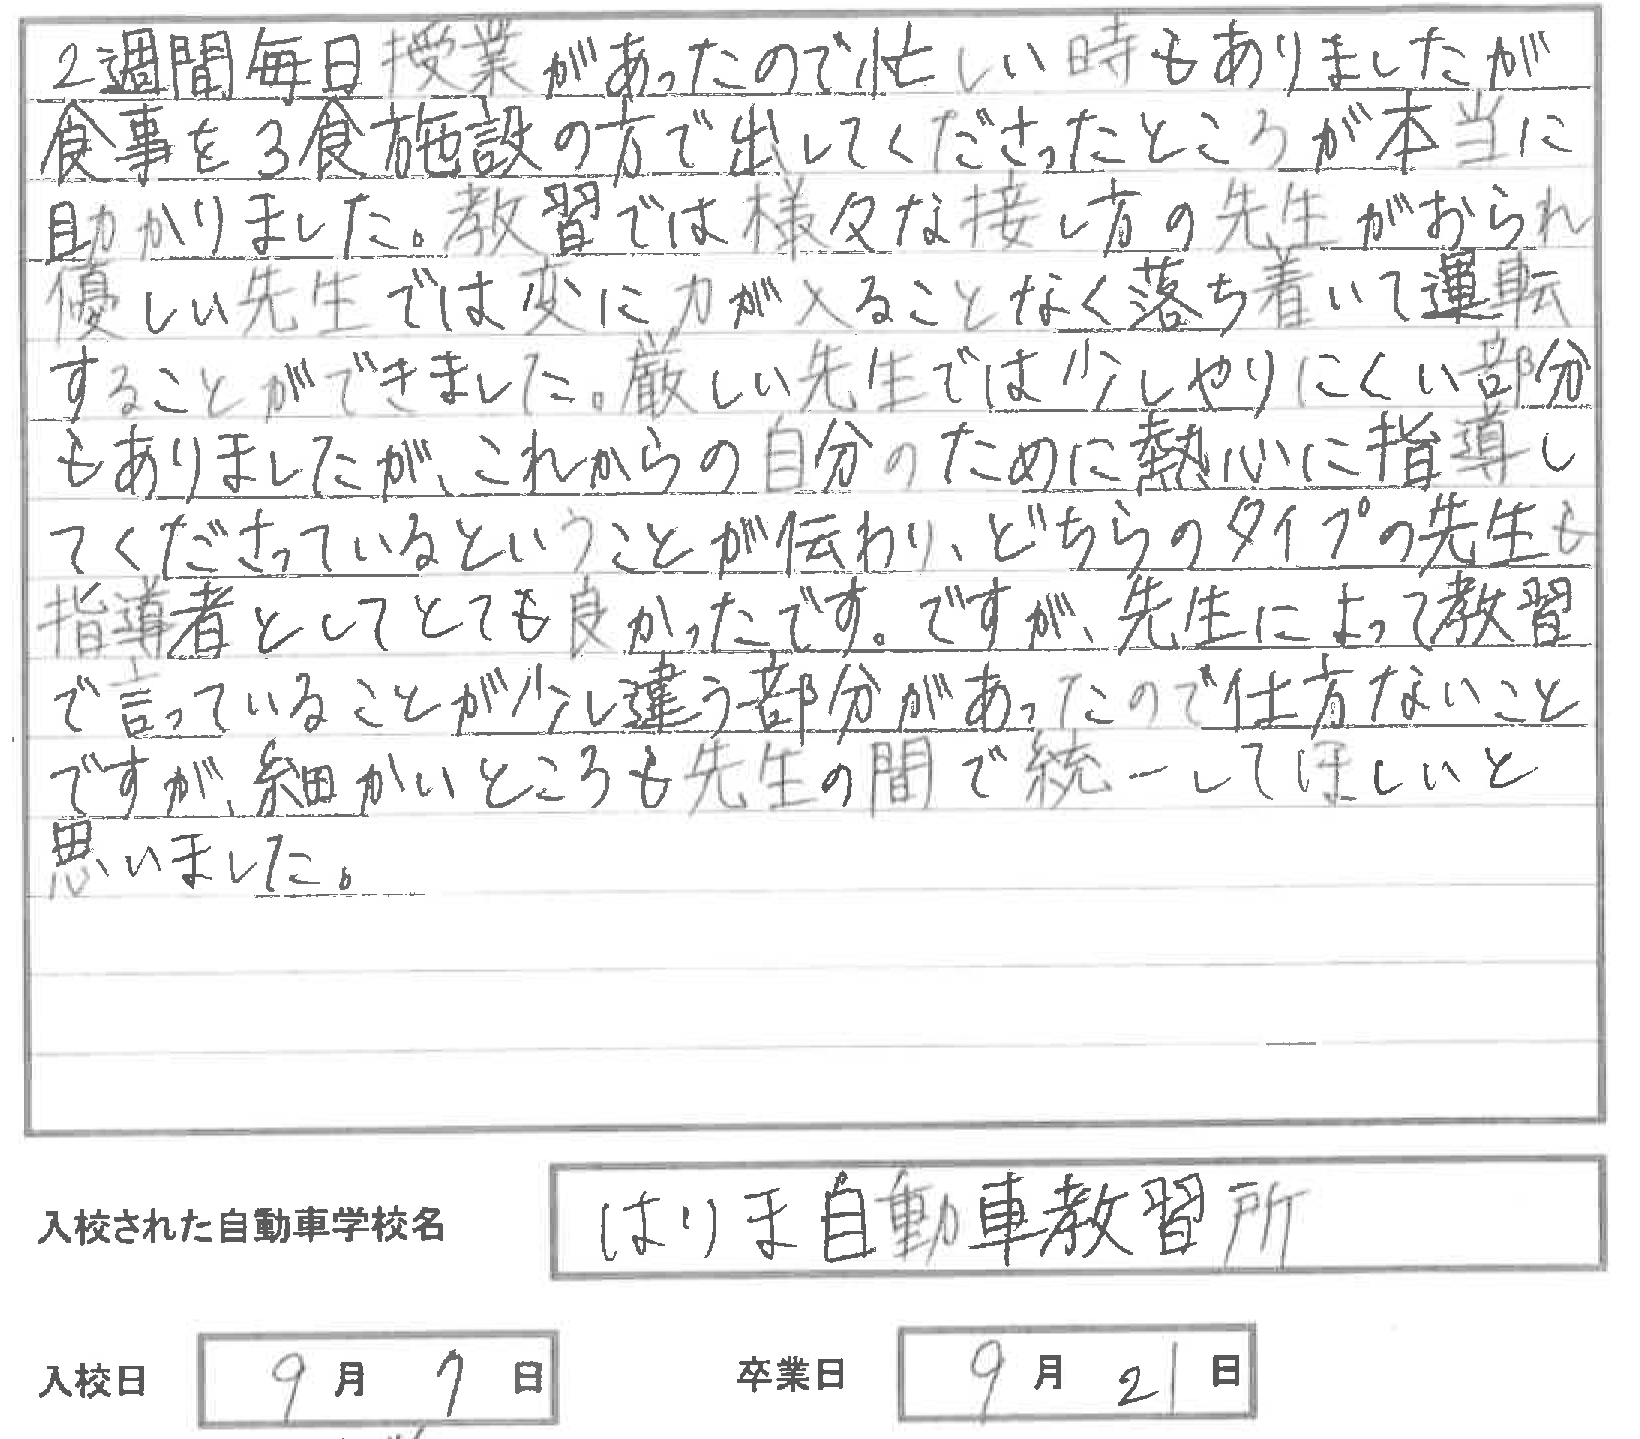 2週間毎日授業があったので忙しい時もありましたが
食事を3食施設の方で出してくださったところが本当に
助かりました。教習では様々な接し方の先生がおられ
優しい先生では変に力が入ることなく落ち着いて運転
することができました。厳しい先生では少しやりにくい部分
もありましたが、これからの自分のために熱心に指導し
てくださっているということが伝わり、どちらのタイプの先生も
指導者としてとても良かったです。ですが、先生によって教習
で言っていることが少し違う部分があったので仕方ないこと
ですが、細かいところも先生の間で統一してほしいと
思いました。
入校された自動車学校名 はりま自動車教習所
入校日 9月7日 卒業日 9月21日